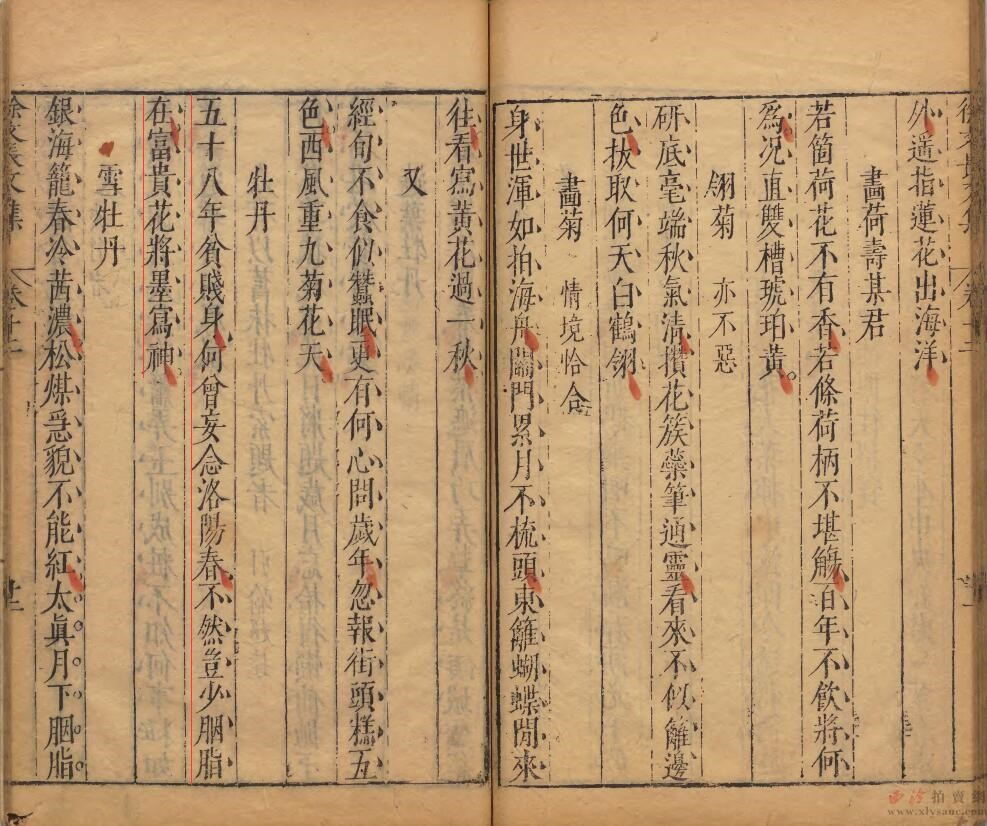 徐文長文集 卷十二
外遥指蓮花出海洋
畫荷壽某君
若箇荷花不有香若條荷柄不堪觴百年不飲將何
爲況直雙槽琥珀黃
翎菊 亦不惡
研底毫端秋氣清攢花簇蘂筆通靈看來不似籬邊
色拔取何天白鶴翎
畫菊 情境恰合
身世渾如拍海舟關門累月不梳頭東籬蝴蝶閒來
往看寫黃花過一秋
又
經旬不食似蠶眠更有何心問歲年忽報街頭糕五
色西風重九菊花天
牡丹
五十八年貧賤身何曾妄念洛陽春不然豈少胭脂
在富貴花將墨寫神
雪牡丹
銀海籠春冷茜濃松煤急貌不能紅太眞月下胭脂
徐文長文集 卷十二 廿二
西泠拍賣網
www.xlysauc.com